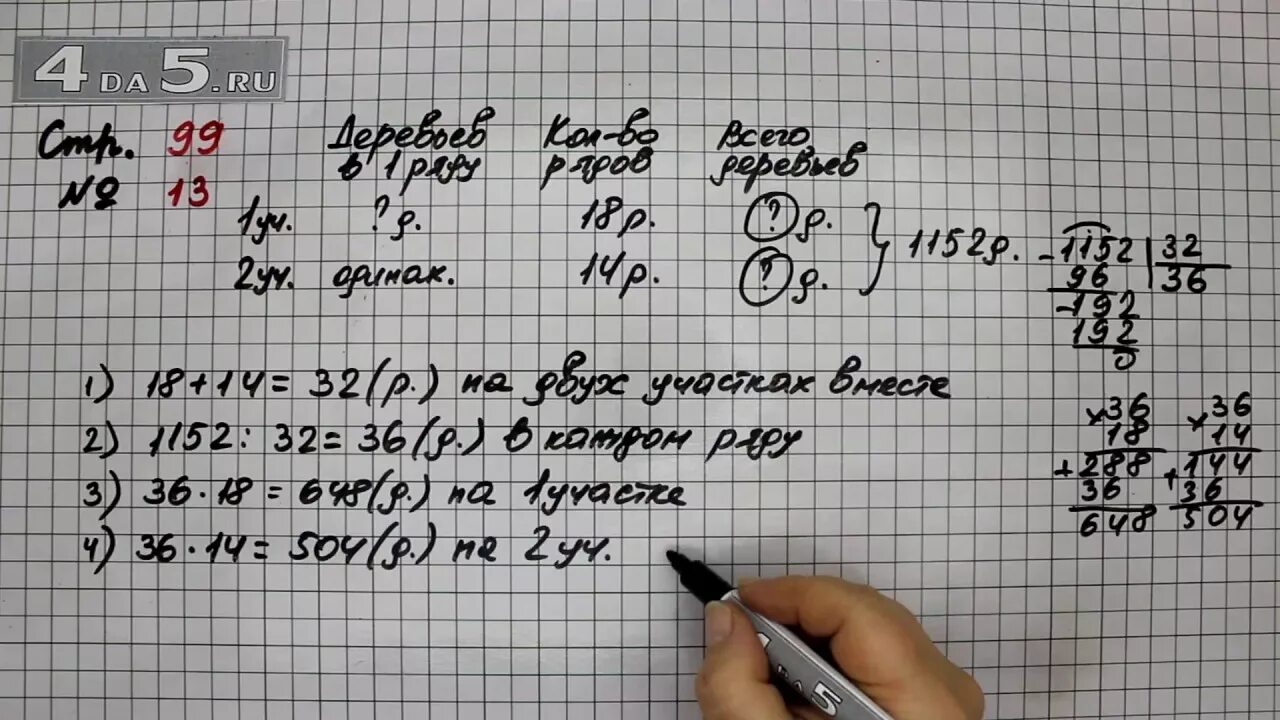 4DA5.RU
Стр. 99
№ 13
Деревьев в 1 ряду
Кол-во рядов
Всего деревьев
1уч. ?д. 18р. ?д.
2уч. одинак. 14р. ?д.
1152д.
-1152 | 32
96 | 36
-192
192
0
1) 18+14= 32(р.) на двух участках вместе
2) 1152: 32= 36(д.) в каждом ряду
3) 36·18= 648(д.) на 1участке
4) 36·14= 504(д.) на 2уч.
×36
18
+288
36
648
×36
14
+144
36
504
DA5